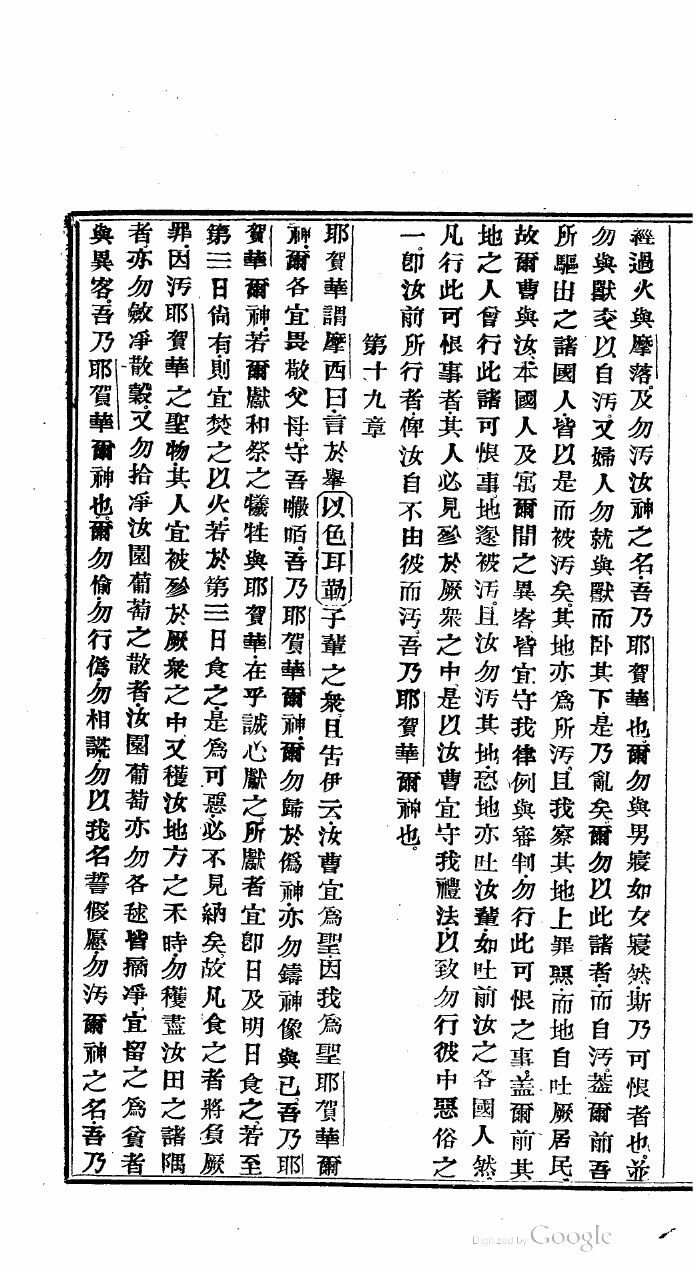 經過火與摩落。及勿汚汝神之名。吾乃耶賀華也。爾勿與男寢如女寢然。斯乃可恨者也。並
勿與獸交以自汚。又婦人勿就與獸而卧其下。是乃亂矣。爾勿以此諸者而自汚。葢爾前吾
所驅出之諸國人皆以是而被汚矣。其地亦為所汚。且我察其地上罪惡。而地自吐厥居民。
故爾曹與汝本國人及寓爾間之異客皆宜守我律例與審判。勿行此可恨之事。盖爾前其
地之人曾行此諸可恨事。地遂被汚。且汝勿汚其地。恐地亦吐汝輩。如吐前汝之各國人然。
凡行此可恨事者。其人必見殄於厥衆之中。是以汝曹宜守我禮法。以致勿行彼中惡俗之
一。即汝前所行者。俾汝自不由彼而汚。吾乃耶賀華爾神也。
第十九章
耶賀華謂摩西曰。言於舉以色耳勤子輩之衆。且告伊云。汝曹宜為聖。因我為聖耶賀華爾
神。爾各宜畏敬父母。守吾𠾷咟。吾乃耶賀華爾神。爾勿歸於僞神。亦勿鑄神像與已。吾乃耶
賀華爾神。若爾獻和祭之犧牲與耶賀華。在乎誠心獻之。所獻者宜即日及明日食之。若至
第三日尚有。則宜焚之以火。若於第三日食之。是為可惡。必不見納矣。故凡食之者將負厥
罪。因汚耶賀華之聖物。其人宜被殄於厥衆之中。又穫汝地方之禾時。勿穫盡汝田之諸隅
者。亦勿斂凈散穀。又勿拾凈汝園葡萄之散者。汝園葡萄亦勿各毬皆摘凈。宜留之為貧者
與異客。吾乃耶賀華爾神也。爾勿偷。勿行僞。勿相謊。勿以我名誓假愿。勿汚爾神之名。吾乃
Digitized by Google